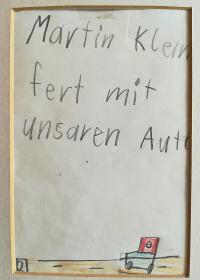 Martin Klein
fert mit
unsaren Auto